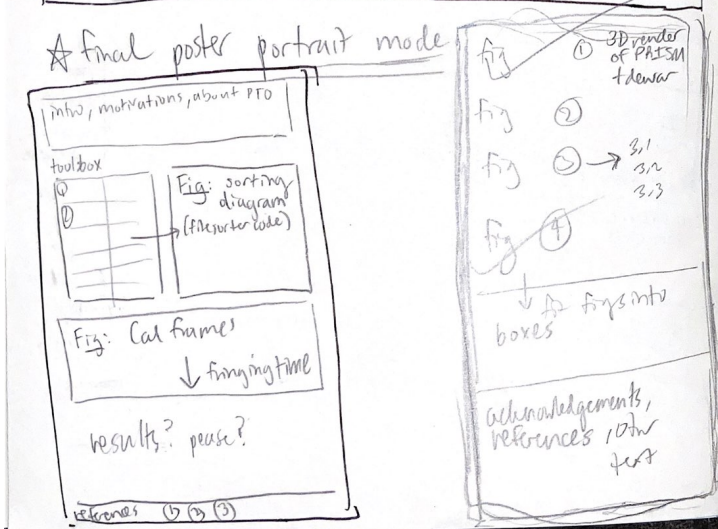 ☆ final poster portrait mode
intro, motivations, about PFO
toolbox
①
②
Fig: sorting
diagram
(filesorter code)
Fig: Cal frames
↓ fringing time
results? please?
references ① ② ③
fig ① 3D render
of PRISM
+ dewar
fig ②
fig ③ → 3,1
3,2
3,3
fig ④
↓ fit figs into
boxes
acknowledgements,
references, other
text